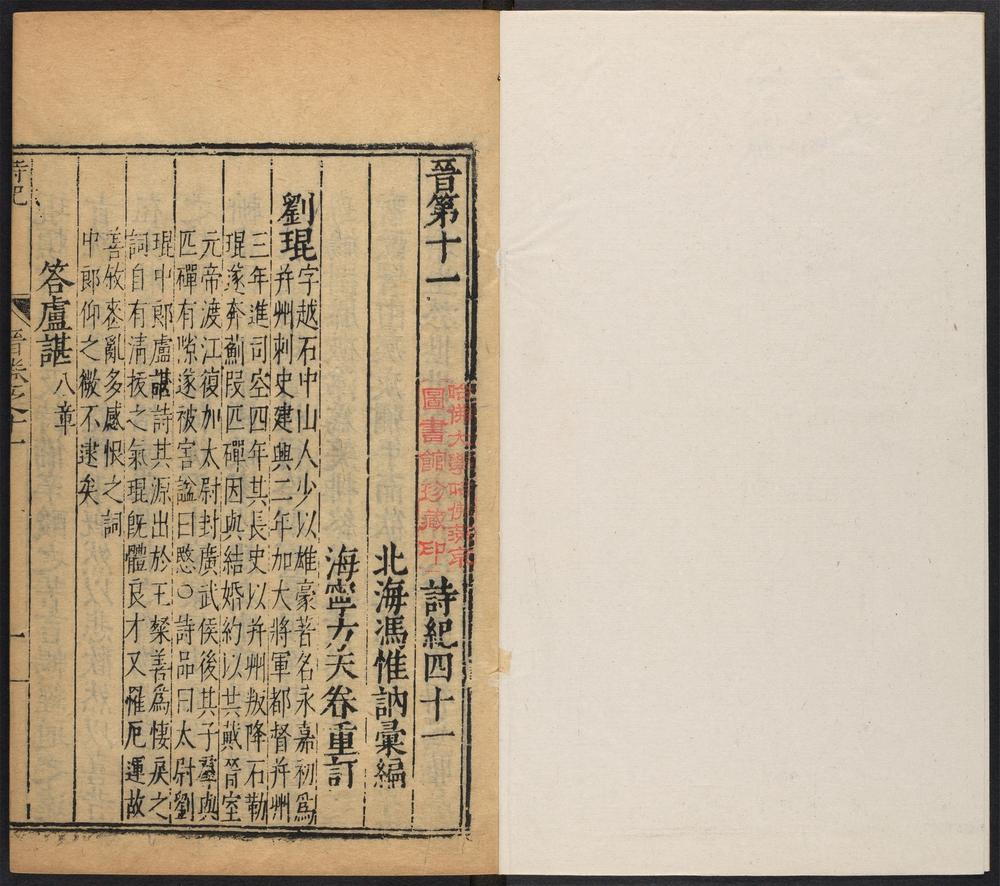 晉第十一 詩紀四十一
哈佛大學哈佛燕京
圖書館珍藏印
北海馮惟訥彙編
海寧方天眷重訂
劉琨字越石中山人少以雄豪著名永嘉初爲
并州刺史建興二年加大將軍都督并州
三年進司空四年其長史以并州叛降石勒
琨遂奔薊段匹磾因與結婚約以共戴晉室
元帝渡江復加太尉封廣武侯後其子羣與
匹磾有隙遂被害謚曰愍○詩品曰太尉劉
琨中郎盧諶詩其源出於王粲善爲悽戾之
詞自有清拔之氣琨既體良才又罹厄運故
善敘喪亂多感恨之詞
中郎仰之微不逮矣
答盧諶八章
詩紀
晉卷之十一
一